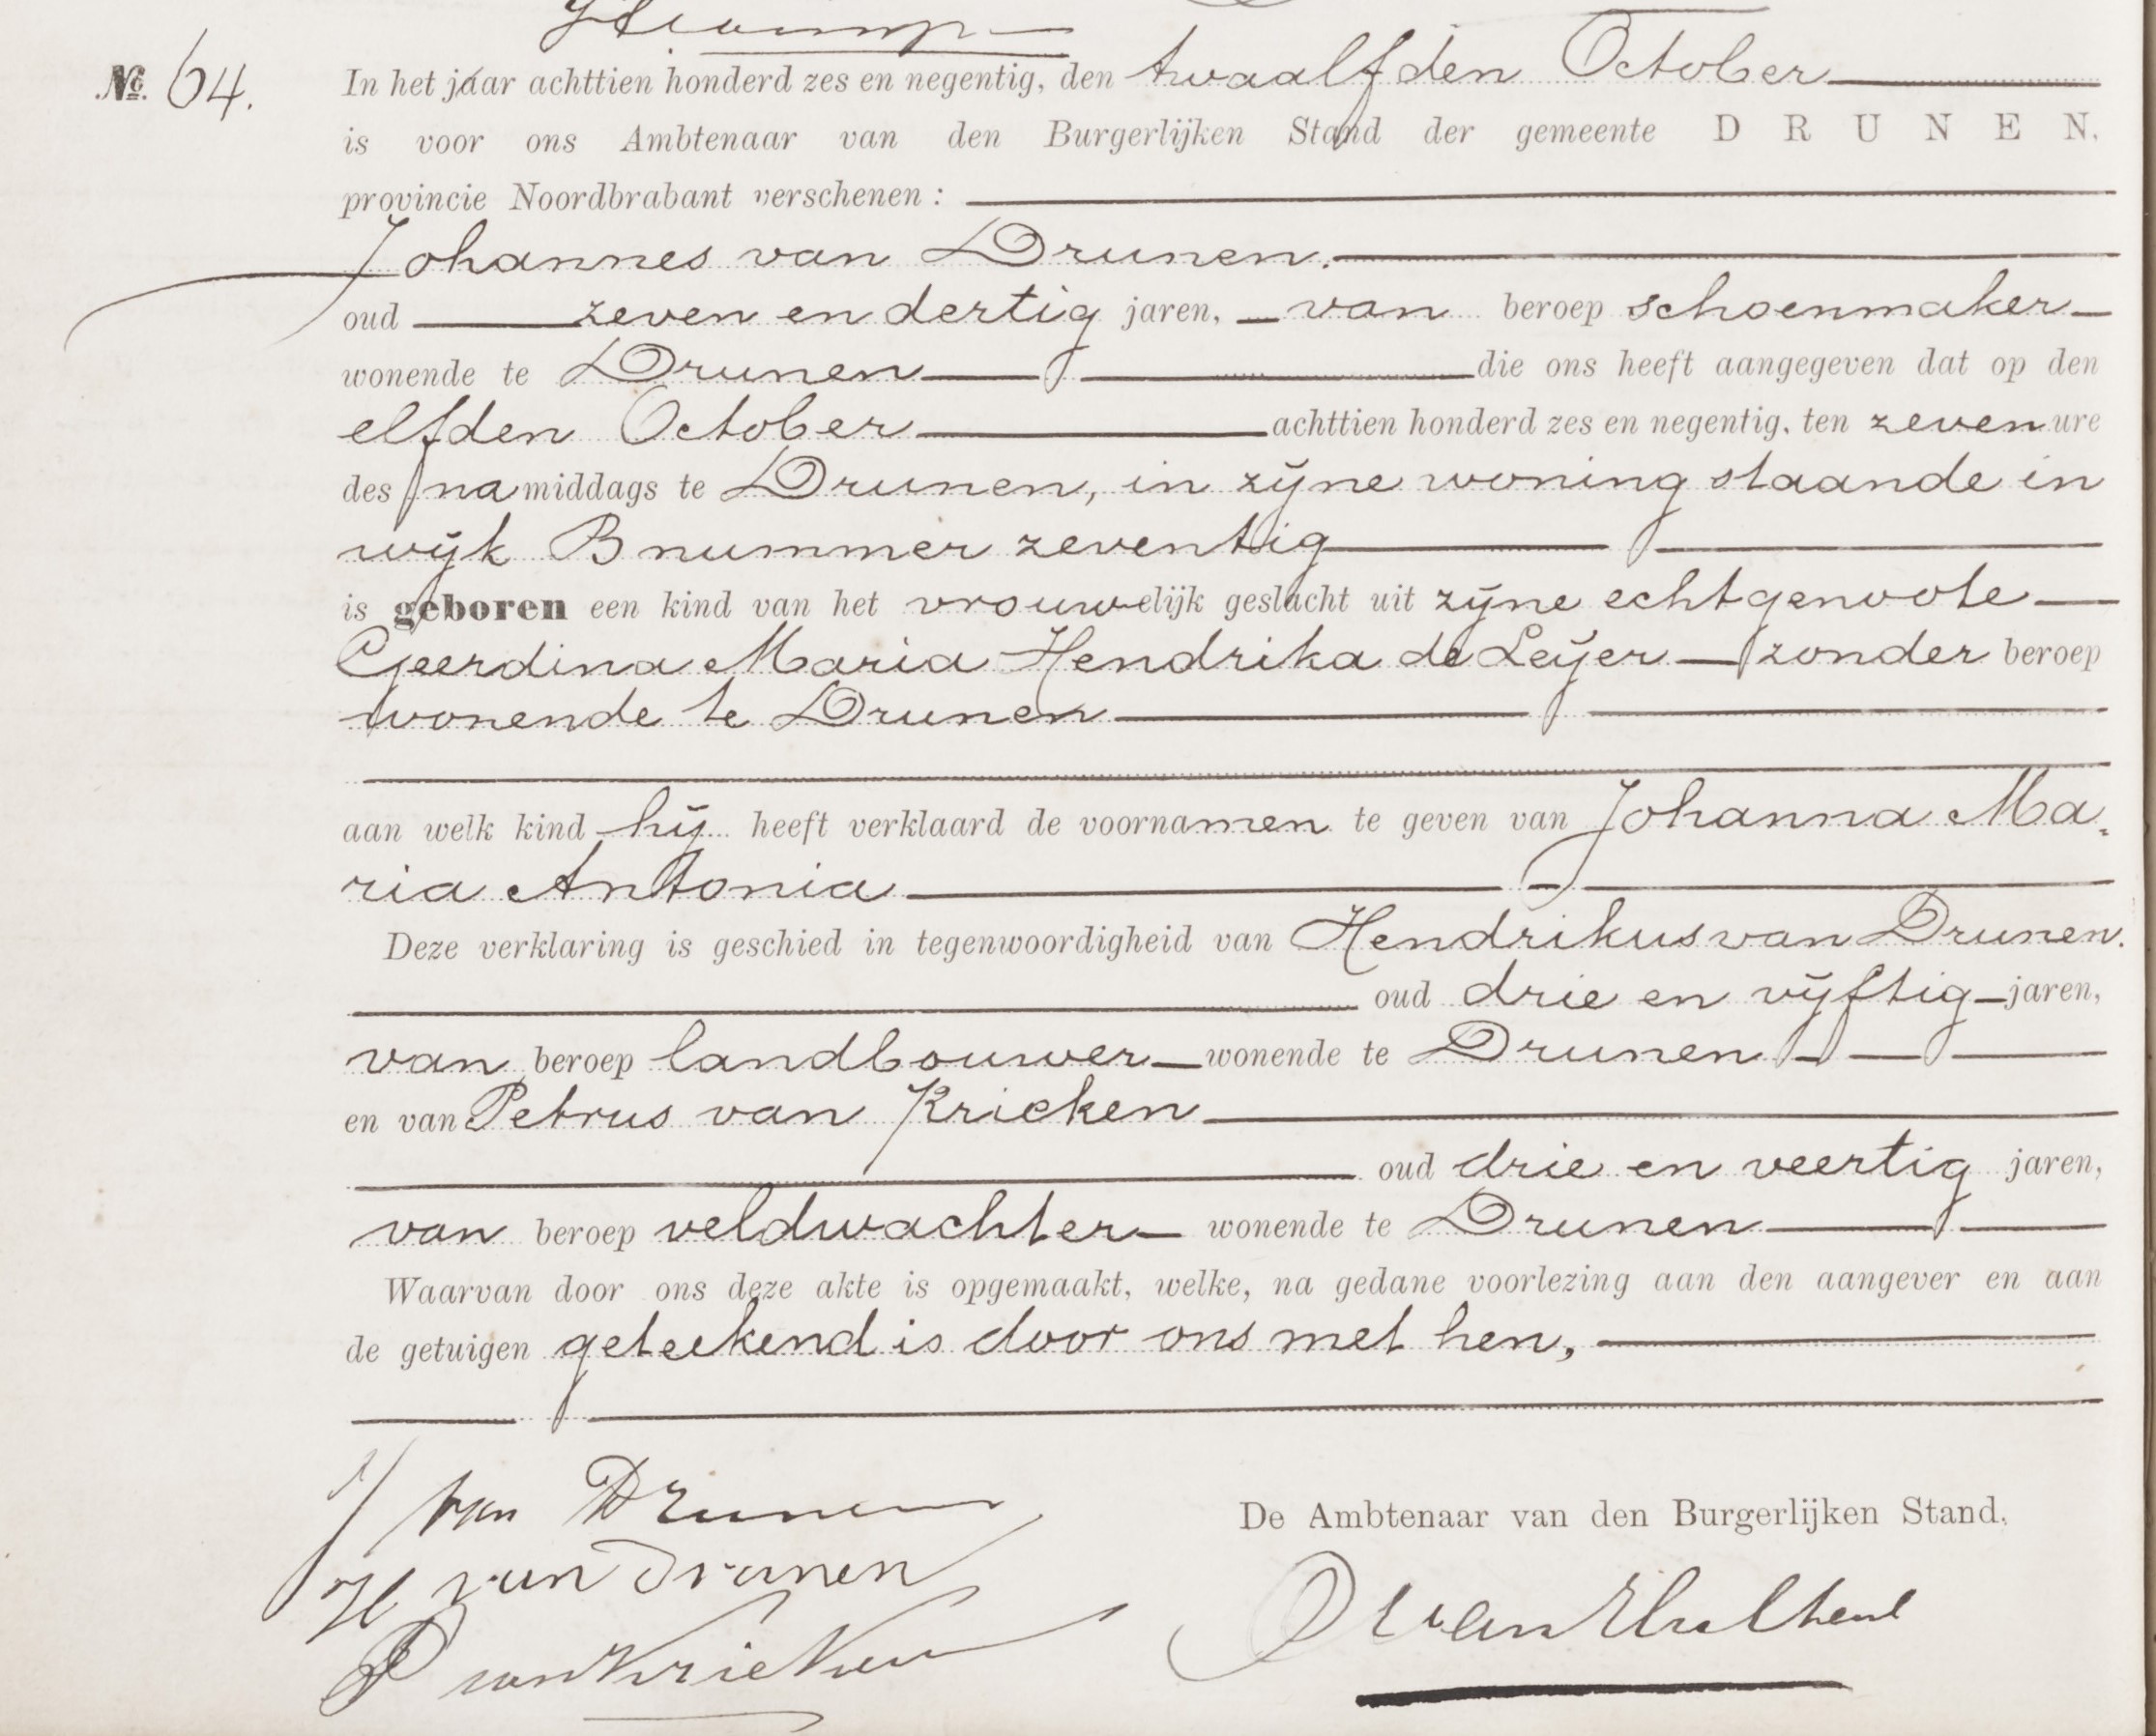 No. 64.
In het jaar achttien honderd zes en negentig, den twaalfden October
is voor ons Ambtenaar van den Burgerlijken Stand der gemeente DRUNEN,
provincie Noordbrabant verschenen:
Johannes van Drunen.
oud zeven en dertig jaren, van beroep schoenmaker
wonende te Drunen die ons heeft aangegeven dat op den
elfden October achttien honderd zes en negentig, ten zeven ure
des namiddags te Drunen, in zijne woning staande in
wijk B nummer zeventig
is geboren een kind van het vrouwelijk geslacht uit zijne echtgenoote
Geerdina Maria Hendrika de Leijer zonder beroep
wonende te Drunen
aan welk kind hij heeft verklaard de voornamen te geven van Johanna Ma-
ria Antonia
Deze verklaring is geschied in tegenwoordigheid van Hendrikus van Drunen.
oud drie en vijftig jaren,
van beroep landbouwer wonende te Drunen
en van Petrus van Kricken
oud drie en veertig jaren,
van beroep veldwachter wonende te Drunen
Waarvan door ons deze akte is opgemaakt, welke, na gedane voorlezing aan den aangever en aan
de getuigen geteekend is door ons met hen,
J van Drunen
De Ambtenaar van den Burgerlijken Stand,
H van Drunen
P van Krieken